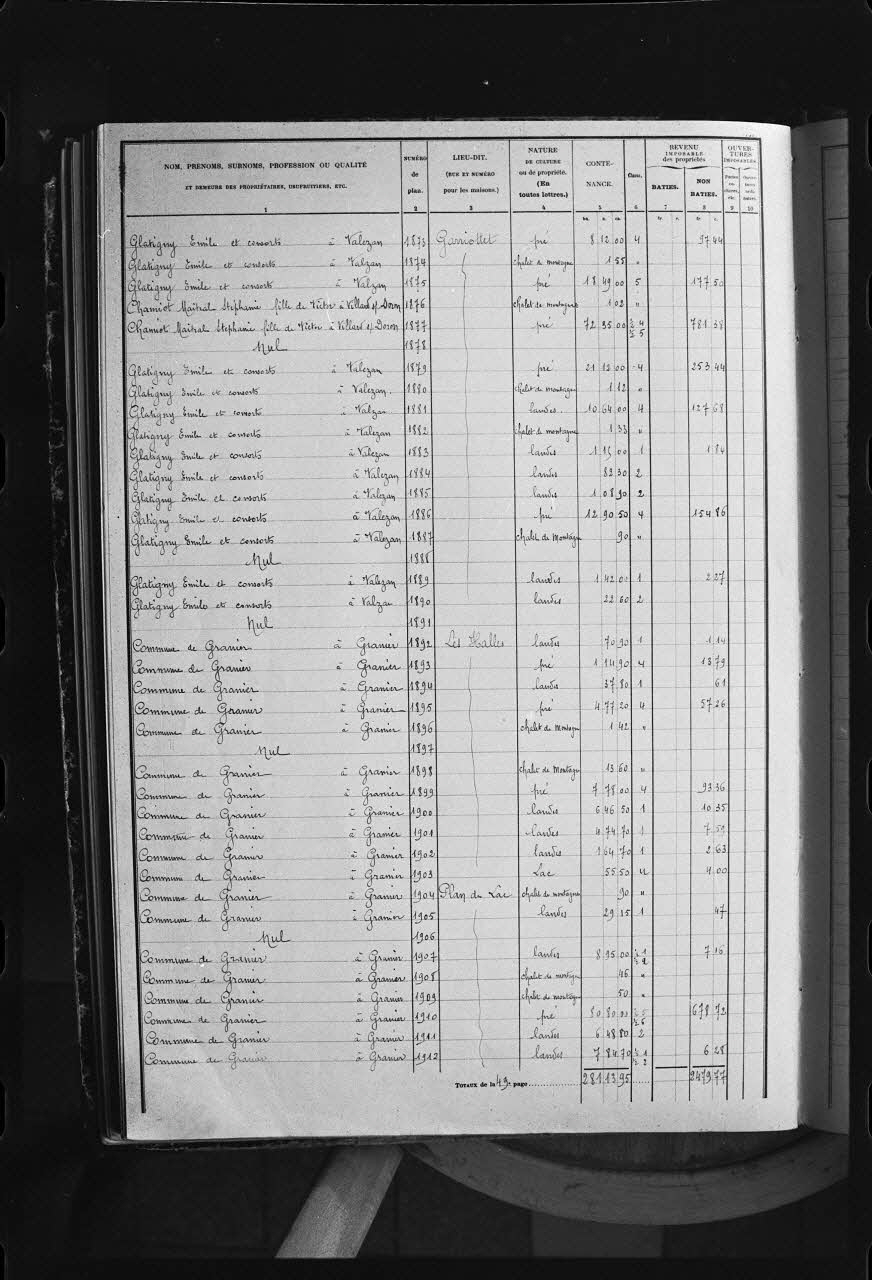 NOM, PRÉNOMS, SURNOMS, PROFESSION OU QUALITÉ ET DEMEURE DES PROPRIÉTAIRES, USUFRUITIERS, ETC. NUMÉRO de plan. LIEU-DIT. (RUE ET NUMÉRO pour les maisons.) NATURE DE CULTURE ou de propriété. (En toutes lettres.) CONTENANCE. Class. REVENU IMPOSABLE des propriétés BATIES. NON BATIES. OUVERTURES IMPOSABLES
1 2 3 4 5 6 7 8 9 10
ha. a. ca. fr. c. fr. c.
Glatigny Emile et consorts à Valezan 1873 Garriottet pré 8 12 00 4 97 44
Glatigny Emile et consorts à Valzan 1874 chalet de montagne 1 55 "
Glatigny Emile et consorts à Valzan 1875 pré 18 49 00 5 177 50
Charniot Maitral Stephanie fille de Victor à Villard s/ Doron 1876 chalet de montagne 1 02 "
Charniot Maitral Stephanie fille de Victor à Villard s/ Doron 1877 pré 72 35 00 ½ 4 ½ 5 781 38
Nul 1878
Glatigny Emile et consorts à Valezan 1879 pré 21 12 00 4 253 44
Glatigny Emile et consorts à Valezan 1880 chalet de montagne 1 12 "
Glatigny Emile et consorts à Valzan 1881 landes 10 64 00 4 127 68
Glatigny Emile et consorts à Valezan 1882 chalet de montagne 1 33 "
Glatigny Emile et consorts à Valezan 1883 landes 1 15 00 1 1 84
Glatigny Emile et consorts à Valezan 1884 landes 82 30 2
Glatigny Emile et consorts à Valezan 1885 landes 1 08 90 2
Glatigny Emile et consorts à Valezan 1886 pré 12 90 50 4 154 86
Glatigny Emile et consorts à Valezan 1887 chalet de Montagne 90 "
Nul 1888
Glatigny Emile et consorts à Valezan 1889 landes 1 42 00 1 2 27
Glatigny Emile et consorts à Valzan 1890 landes 22 60 2
Nul 1891
Commune de Granier à Granier 1892 Les Halles landes 70 90 1 1 14
Commune de Granier à Granier 1893 pré 1 14 90 4 13 79
Commune de Granier à Granier 1894 landes 37 80 1 61
Commune de Granier à Granier 1895 pré 4 77 20 4 57 26
Commune de Granier à Granier 1896 chalet de Montagne 1 42 "
Nul 1897
Commune de Granier à Granier 1898 chalet de Montagne 13 60 "
Commune de Granier à Granier 1899 pré 7 78 00 4 93 36
Commune de Granier à Granier 1900 landes 6 46 50 1 10 35
Commune de Granier à Granier 1901 landes 4 74 70 1 7 59
Commune de Granier à Granier 1902 landes 1 64 70 1 2 63
Commune de Granier à Granier 1903 Lac 55 50 4.00
Commune de Granier à Granier 1904 Plan du Lac chalet de montagne 90 "
Commune de Granier à Granier 1905 landes 29 15 1 47
Nul 1906
Commune de Granier à Granier 1907 landes 8 95 00 ½ 1 ½ 2 7 16
Commune de Granier à Granier 1908 chalet de montagne 46 "
Commune de Granier à Granier 1909 chalet de montagne 50 "
Commune de Granier à Granier 1910 pré 80 80 00 ½ 5 ½ 6 678 72
Commune de Granier à Granier 1911 landes 6 48 80 2
Commune de Granier à Granier 1912 landes 7 84 70 ½ 1 ½ 2 6 28
TOTAUX de la 49e page 281 13 95 2479 77